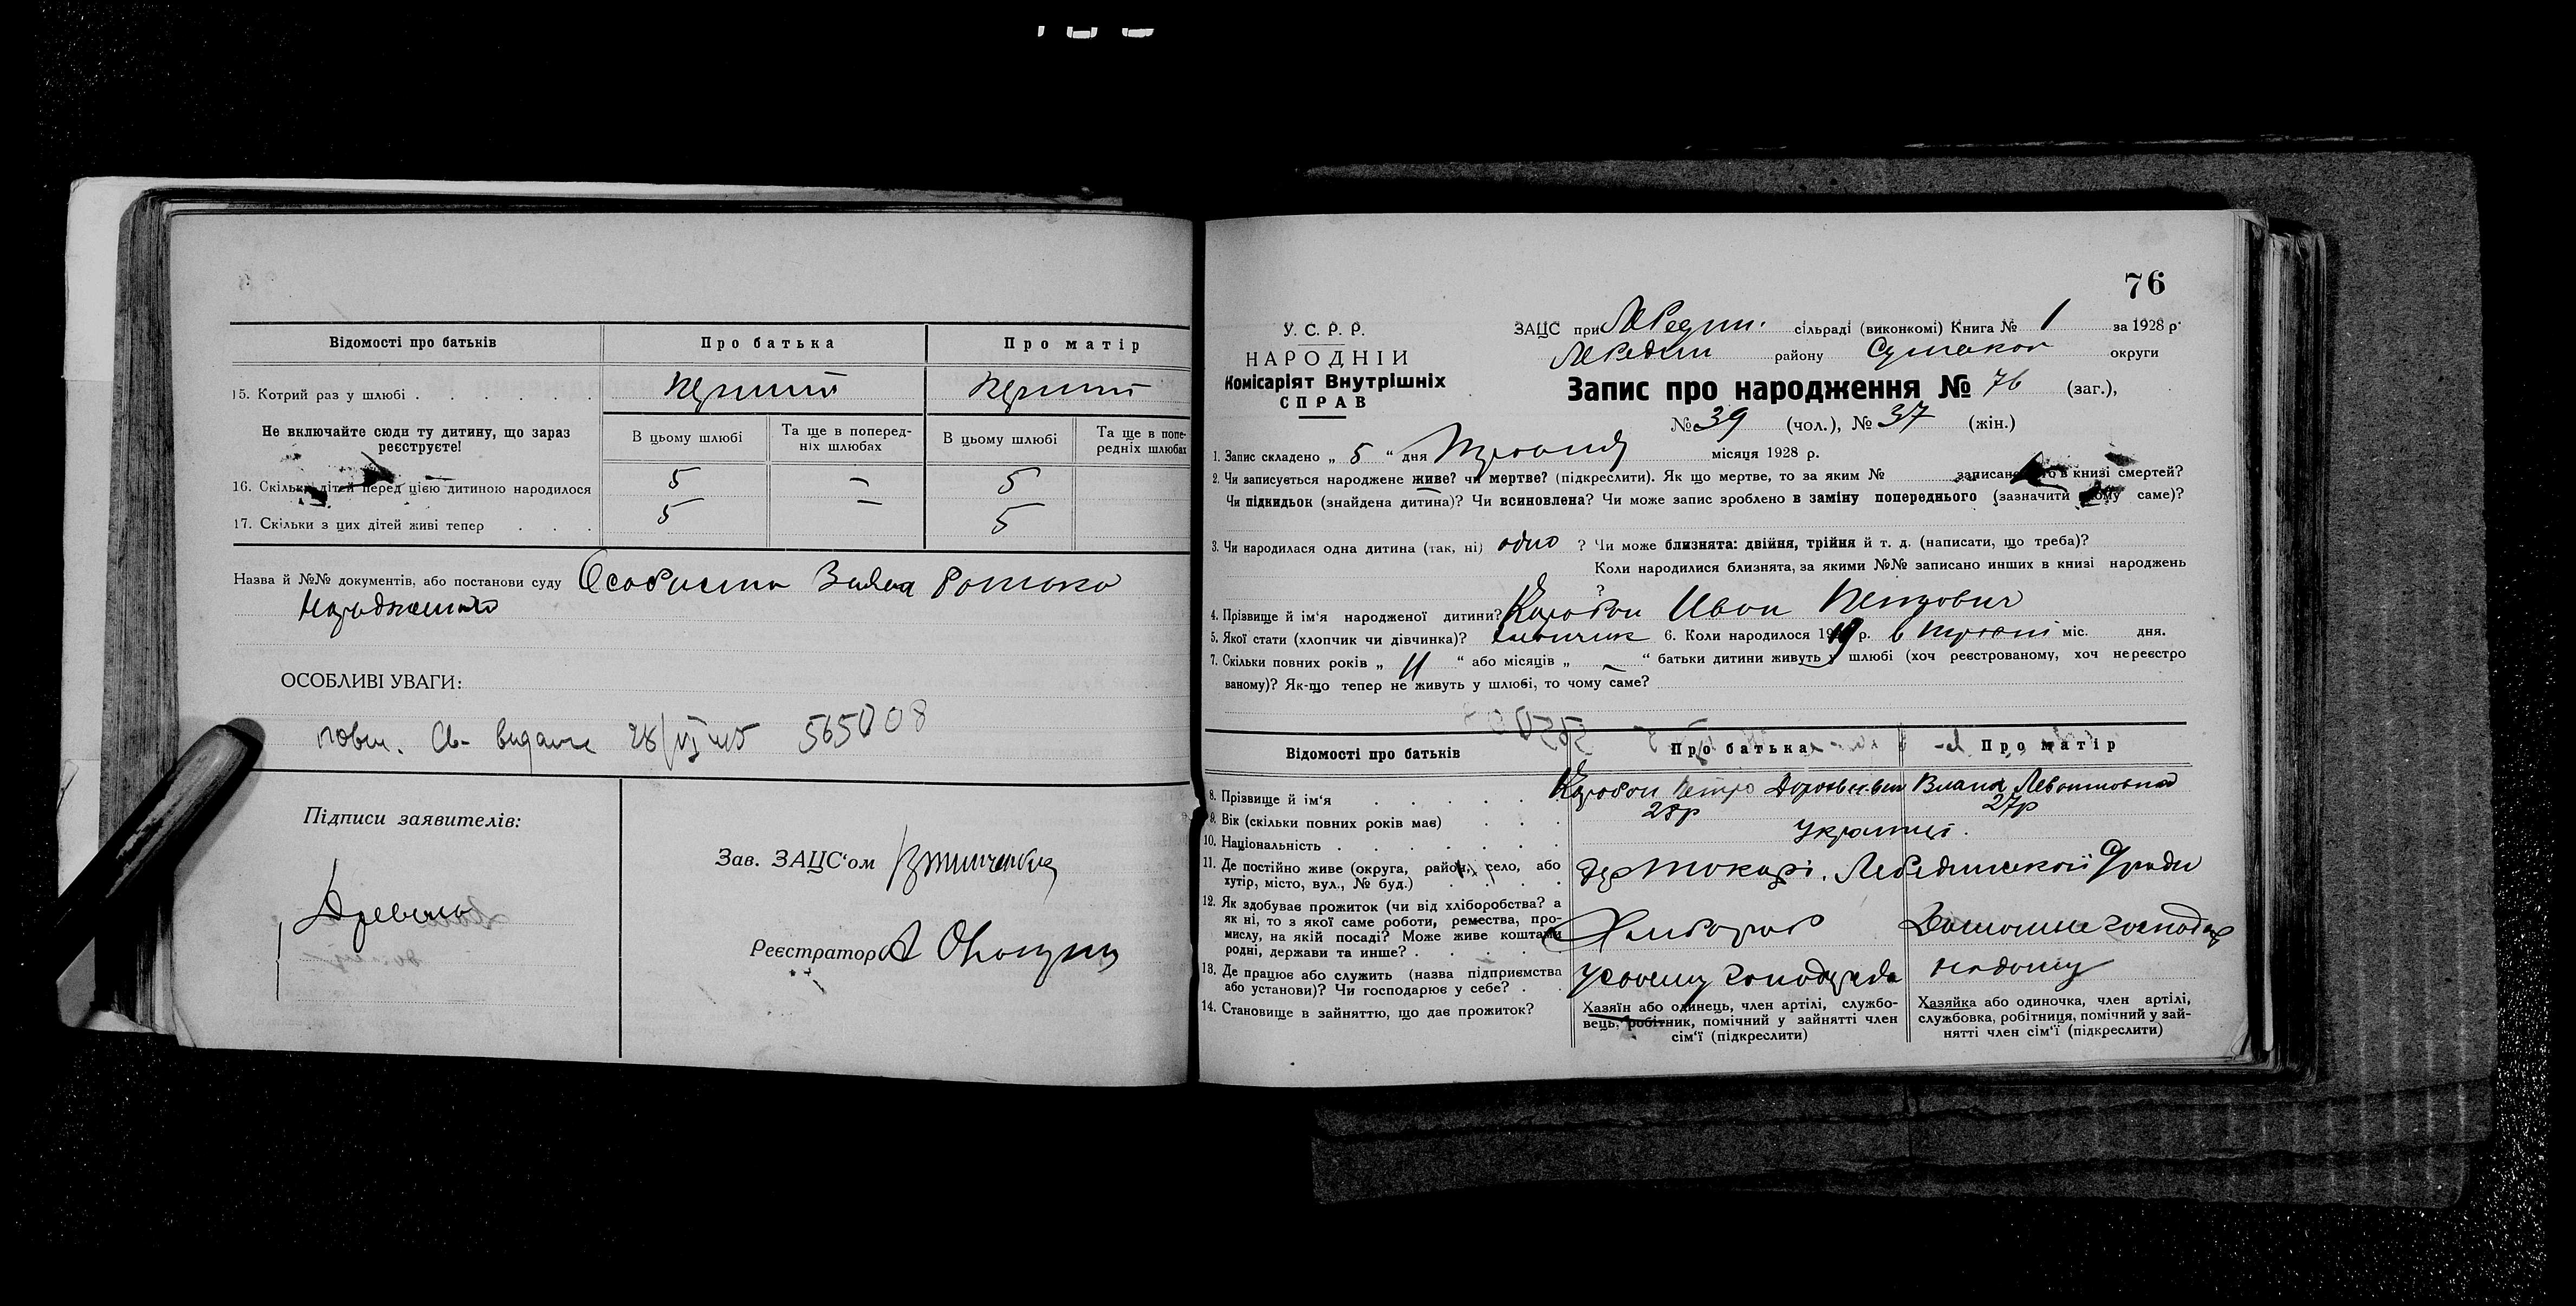 Відомості про батьків Про батька Про матір
15. Котрий раз у шлюбі . . . . . . перший перший
Не включайте сюди ту дитину, що зараз реєструєте!
В цьому шлюбі Та ще в попередніх шлюбах В цьому шлюбі Та ще в попередніх шлюбах
16. Скільки дітей перед цією дитиною народилося 5 — 5
17. Скільки з цих дітей живі тепер . . . 5 — 5
Назва й №№ документів, або постанови суду Особиста Заява
народженого
ОСОБЛИВІ УВАГИ:
повт. Св- видане 28/VI 45 565008
Підписи заявителів:
Зав. ЗАЦС'ом
Реєстратор
76
У. С. Р. Р.
НАРОДНІЙ
Комісаріят Внутрішніх
СПРАВ
ЗАЦС при Лебедин. сільраді (виконкомі) Книга № 1 за 1928 р.
Лебедин району Сумської округи
Запис про народження № 76 (заг.),
№ 39 (чол.), № 37 (жін.)
1. Запис складено „ 5 “ дня місяця 1928 р.
2. Чи записується народжене живе? чи мертве? (підкреслити). Як що мертве, то за яким № записано його в книзі смертей?
Чи підкидьок (знайдена дитина)? Чи всиновлена? Чи може запис зроблено в заміну попереднього (зазначити чому саме)?
3. Чи народилася одна дитина (так, ні) одно ? Чи може близнята: двійня, трійня й т. д. (написати, що треба)?
Коли народилися близнята, за якими №№ записано инших в книзі народжень
?
4. Прізвище й ім'я народженої дитини? Коробон Иван Петрович
5. Якої стати (хлопчик чи дівчинка)? хлопчик 6. Коли народилося 19 р. в міс. дня.
7. Скільки повних років „ 11 “ або місяців „ — “ батьки дитини живуть у шлюбі (хоч реєстрованому, хоч нереєстро
ваному)? Як-що тепер не живуть у шлюбі, то чому саме?
Відомості про батьків Про батька Про матір
8. Прізвище й ім'я . . . . . Коробон Петро
9. Вік (скільки повних років має) . . . 28р 27р
10. Національність . . . . . . . українці.
11. Де постійно живе (округа, район, село, або
хутір, місто, вул., № буд.) . . . . . дер Токарі. Лебединської с/ради
12. Як здобуває прожиток (чи від хліборобства? а
як ні, то з якої саме роботи, ремества, про-
мислу, на якій посаді? Може живе коштами
родні, держави та инше? . . . . . . Хлібороб Домашне господар
13. Де працює або служить (назва підприємства
або установи)? Чи господарює у себе? . . У своему господарстві на дому
14. Становище в зайняттю, що дає прожиток?
Хазяїн або одинець, член артілі, службо-
вець, робітник, помічний у зайнятті член
сім'ї (підкреслити)
Хазяйка або одиночка, член артілі,
службовка, робітниця, помічний у зай-
нятті член сім'ї (підкреслити)